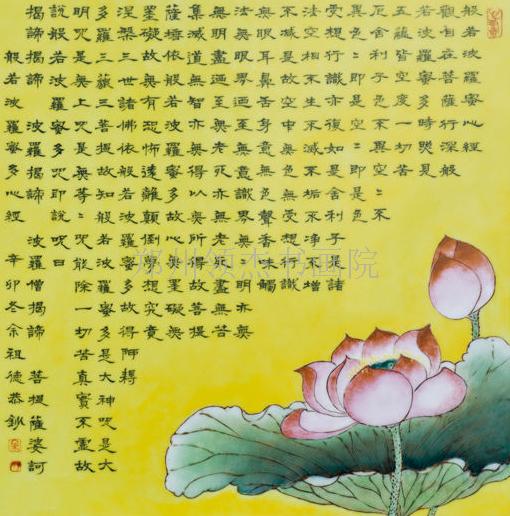 般若波羅蜜多心經
觀自在菩薩行深般
若波羅蜜多時照見
五蘊皆空度一切苦
厄舍利子色不異空〻不
異色〻即是空〻即是色
受想行識亦復如是舍利子是諸
法空相不生不滅不垢不淨不增
不減是故空中無色無受想行識
無眼耳鼻舌身意無色聲香味觸
法無眼界迺至無意識界無無明亦無
無明盡迺至無老死亦無老死盡無苦
集滅道無智亦無得以無所得故菩提
薩埵依般若波羅蜜多故心無罣礙無
罣礙故無有恐怖遠離顛倒夢想究竟
涅槃三世諸佛依般若波羅蜜多故得阿耨
多羅三藐三菩提故知般若波羅蜜多是大神咒是大
明咒是無上咒是無等〻咒能除一切苦真實不虛故
說般若波羅蜜多咒即說咒曰
揭諦揭諦 波羅揭諦 波羅僧揭諦 菩提薩婆訶
般若波羅蜜多心經 辛卯冬余祖德恭鈔
郑州领杰书画院